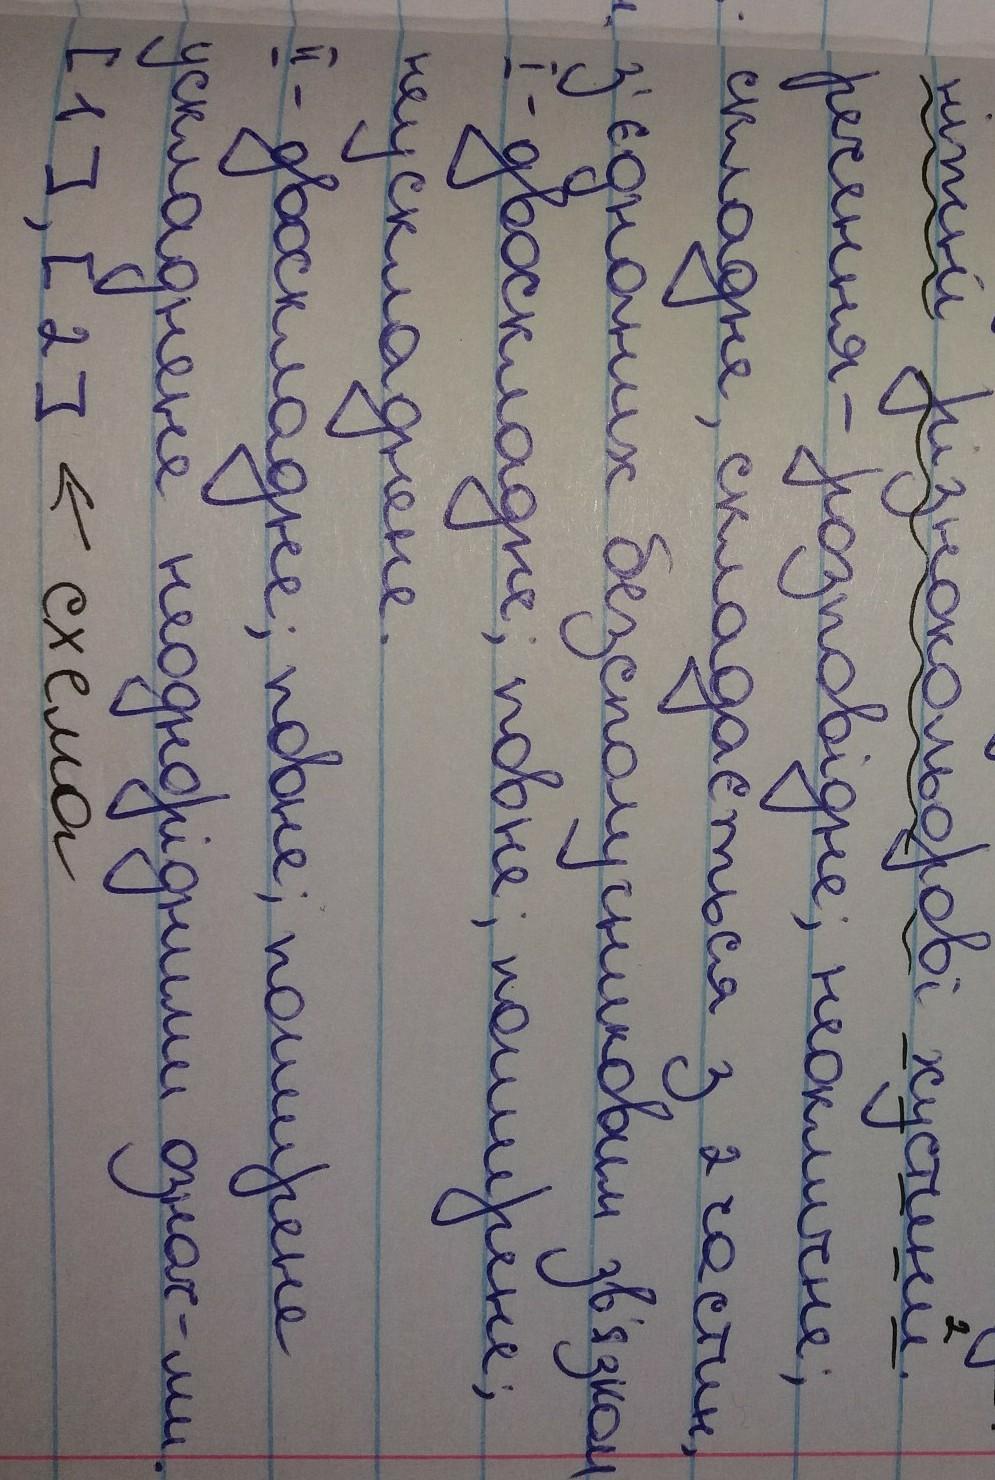 ніжні різнокольорові хустини².
речення - розповідне; неокличне;
складне, складається з 2 частин,
з'єднаних безсполучниковим зв'язком
І - двоскладне; повне; поширене;
неускладнене.
ІІ - двоскладне; повне; поширене
ускладнене неоднорідними означ-ми.
[1], [2] ← схема